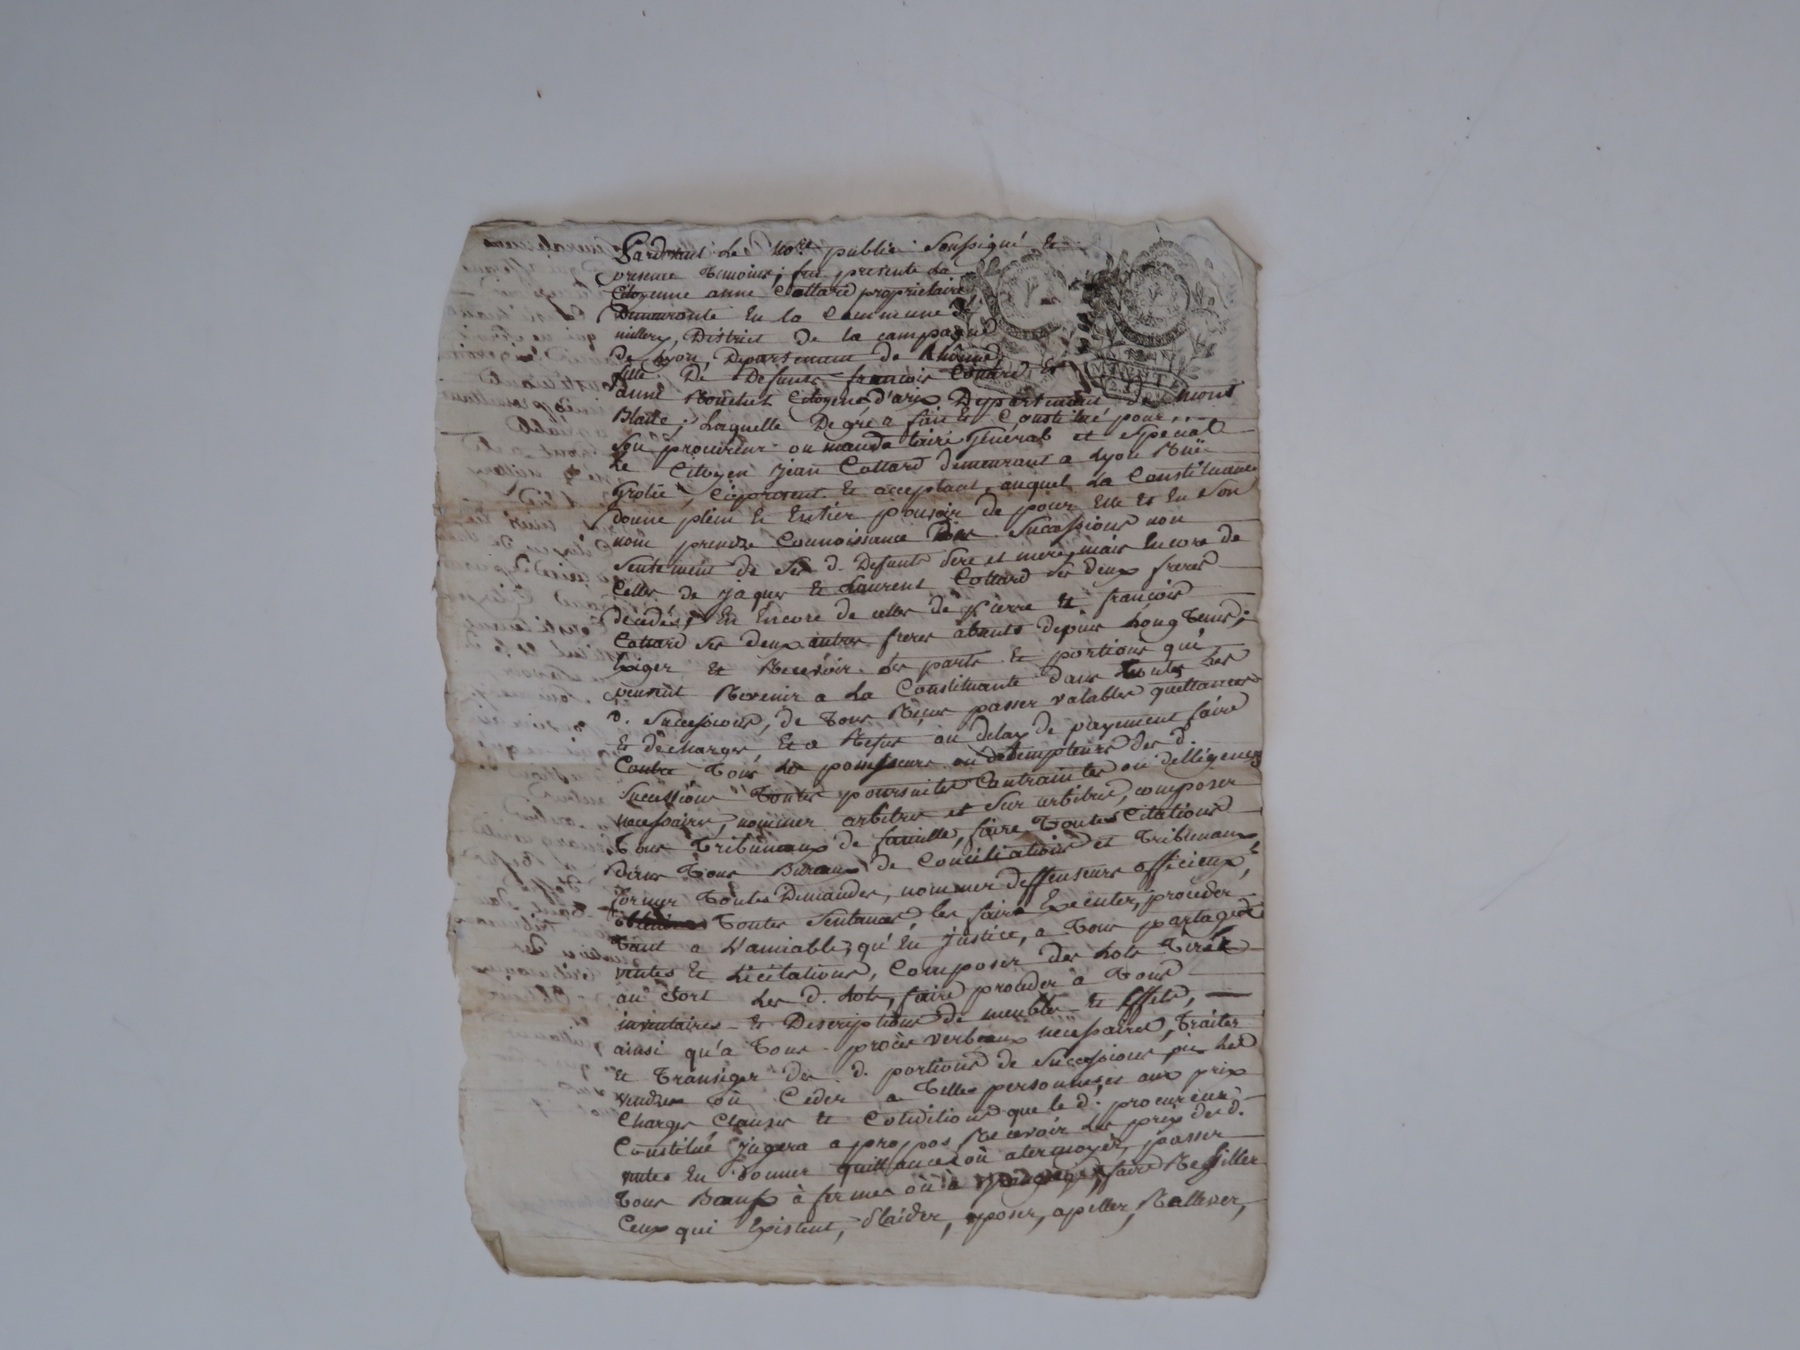 Pardevant Le No.re public soussigné et
présence témoins; fut présente La
Citoyenne anne Cottard proprietaire
Demeurante En la Commune de
millery, District de la campagne
de Lyon, Departement de Rhône
fille De Defunts francois Cottard et
anne Bouchet Citoyens d'arx Departement de mont
Blanc, Laquelle De gré a fait et Constitué pour
Son procureur ou mandataire Général et Special
Le Citoyen jean Cottard demeurant a Lyon Rue
Grolée, Ciprésent et acceptant, auquel La Constituante
donne plein et Entier pouvoir de pour Elle et En Son
nom prendre Connoissance Des Successions non
Seulement de Ses d. Defunts Pere et mere, mais Encore de
Celles de jaques et Laurent Cottard Ses deux freres
décédés, Et Encore de celles de pierre et francois
Cottard Ses deux autres freres absents depuis Longtems;
Exiger et Recevoir Les parts et portions qui
peuvent Revenir a La Constituante dans toutes Les
d. Successions, de tous Reçus passer valables quittances
et décharges Et a Refus ou delay de payement faire
Contre tous Les possesseurs ou détempteurs des d.
Successions toutes poursuites Contraintes ou delligences
necessaires, nommer arbitres et Sur arbitres, composer
tous tribunaux de famille, faire toutes Citations
dans tous Bureaux de Conciliations et tribunaux
former toutes Demandes, nommer deffenseurs officieux,
toutes Sentances les faire Executer, proceder
tant a L'amiable, qu'En justice, a tous partages
ventes et Licitations, Composer des Lots tirer
au Sort Les d. Lots, faire proceder à tous
inventaires et Descriptions de meubles et Effets,
ainsi qu'a tous procès verbeaux necessaires, traiter
et transiger des d. portions de Successions, ou Les
vendre ou Ceder a telles personnes, et aux prix
Charges Clauses et Conditions que le d. procureur
Constitué jugera a proppos, Recevoir Les prix des d.
ventes En donner quittances ou atermoyer, passer
tous Baux à fermes ou à faire Resiller
Ceux qui Existent, Plaider, oposer, apeller, Rellever,